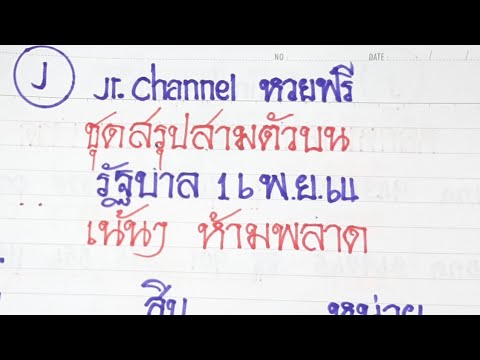 NO DATE: / /
J Jr. Channel หวยฟรี
ชุดสรุปสามตัวบน
รัฐบาล 16 พ.ย.61
เน้นๆ ห้ามพลาด
สิบ หน่วย